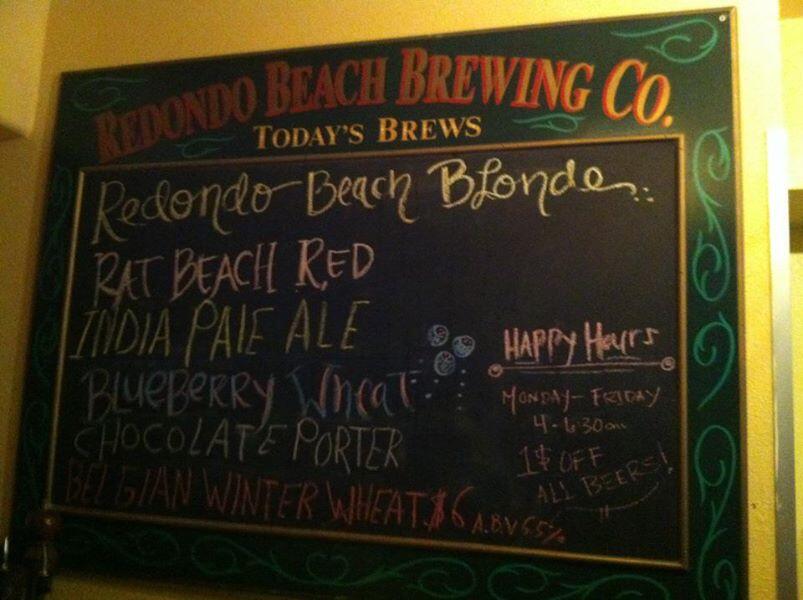 REDONDO BEACH BREWING CO.
TODAY'S BREWS
Redondo Beach Blonde
RAT BEACH RED
INDIA PALE ALE
BLUEBERRY Wheat
CHOCOLATE PORTER
BELGIAN WINTER WHEAT $6 A.B.V 6.5%
HAPPY Hours
MONDAY - FRIDAY
4 - 6:30
1$ OFF
ALL BEERS!